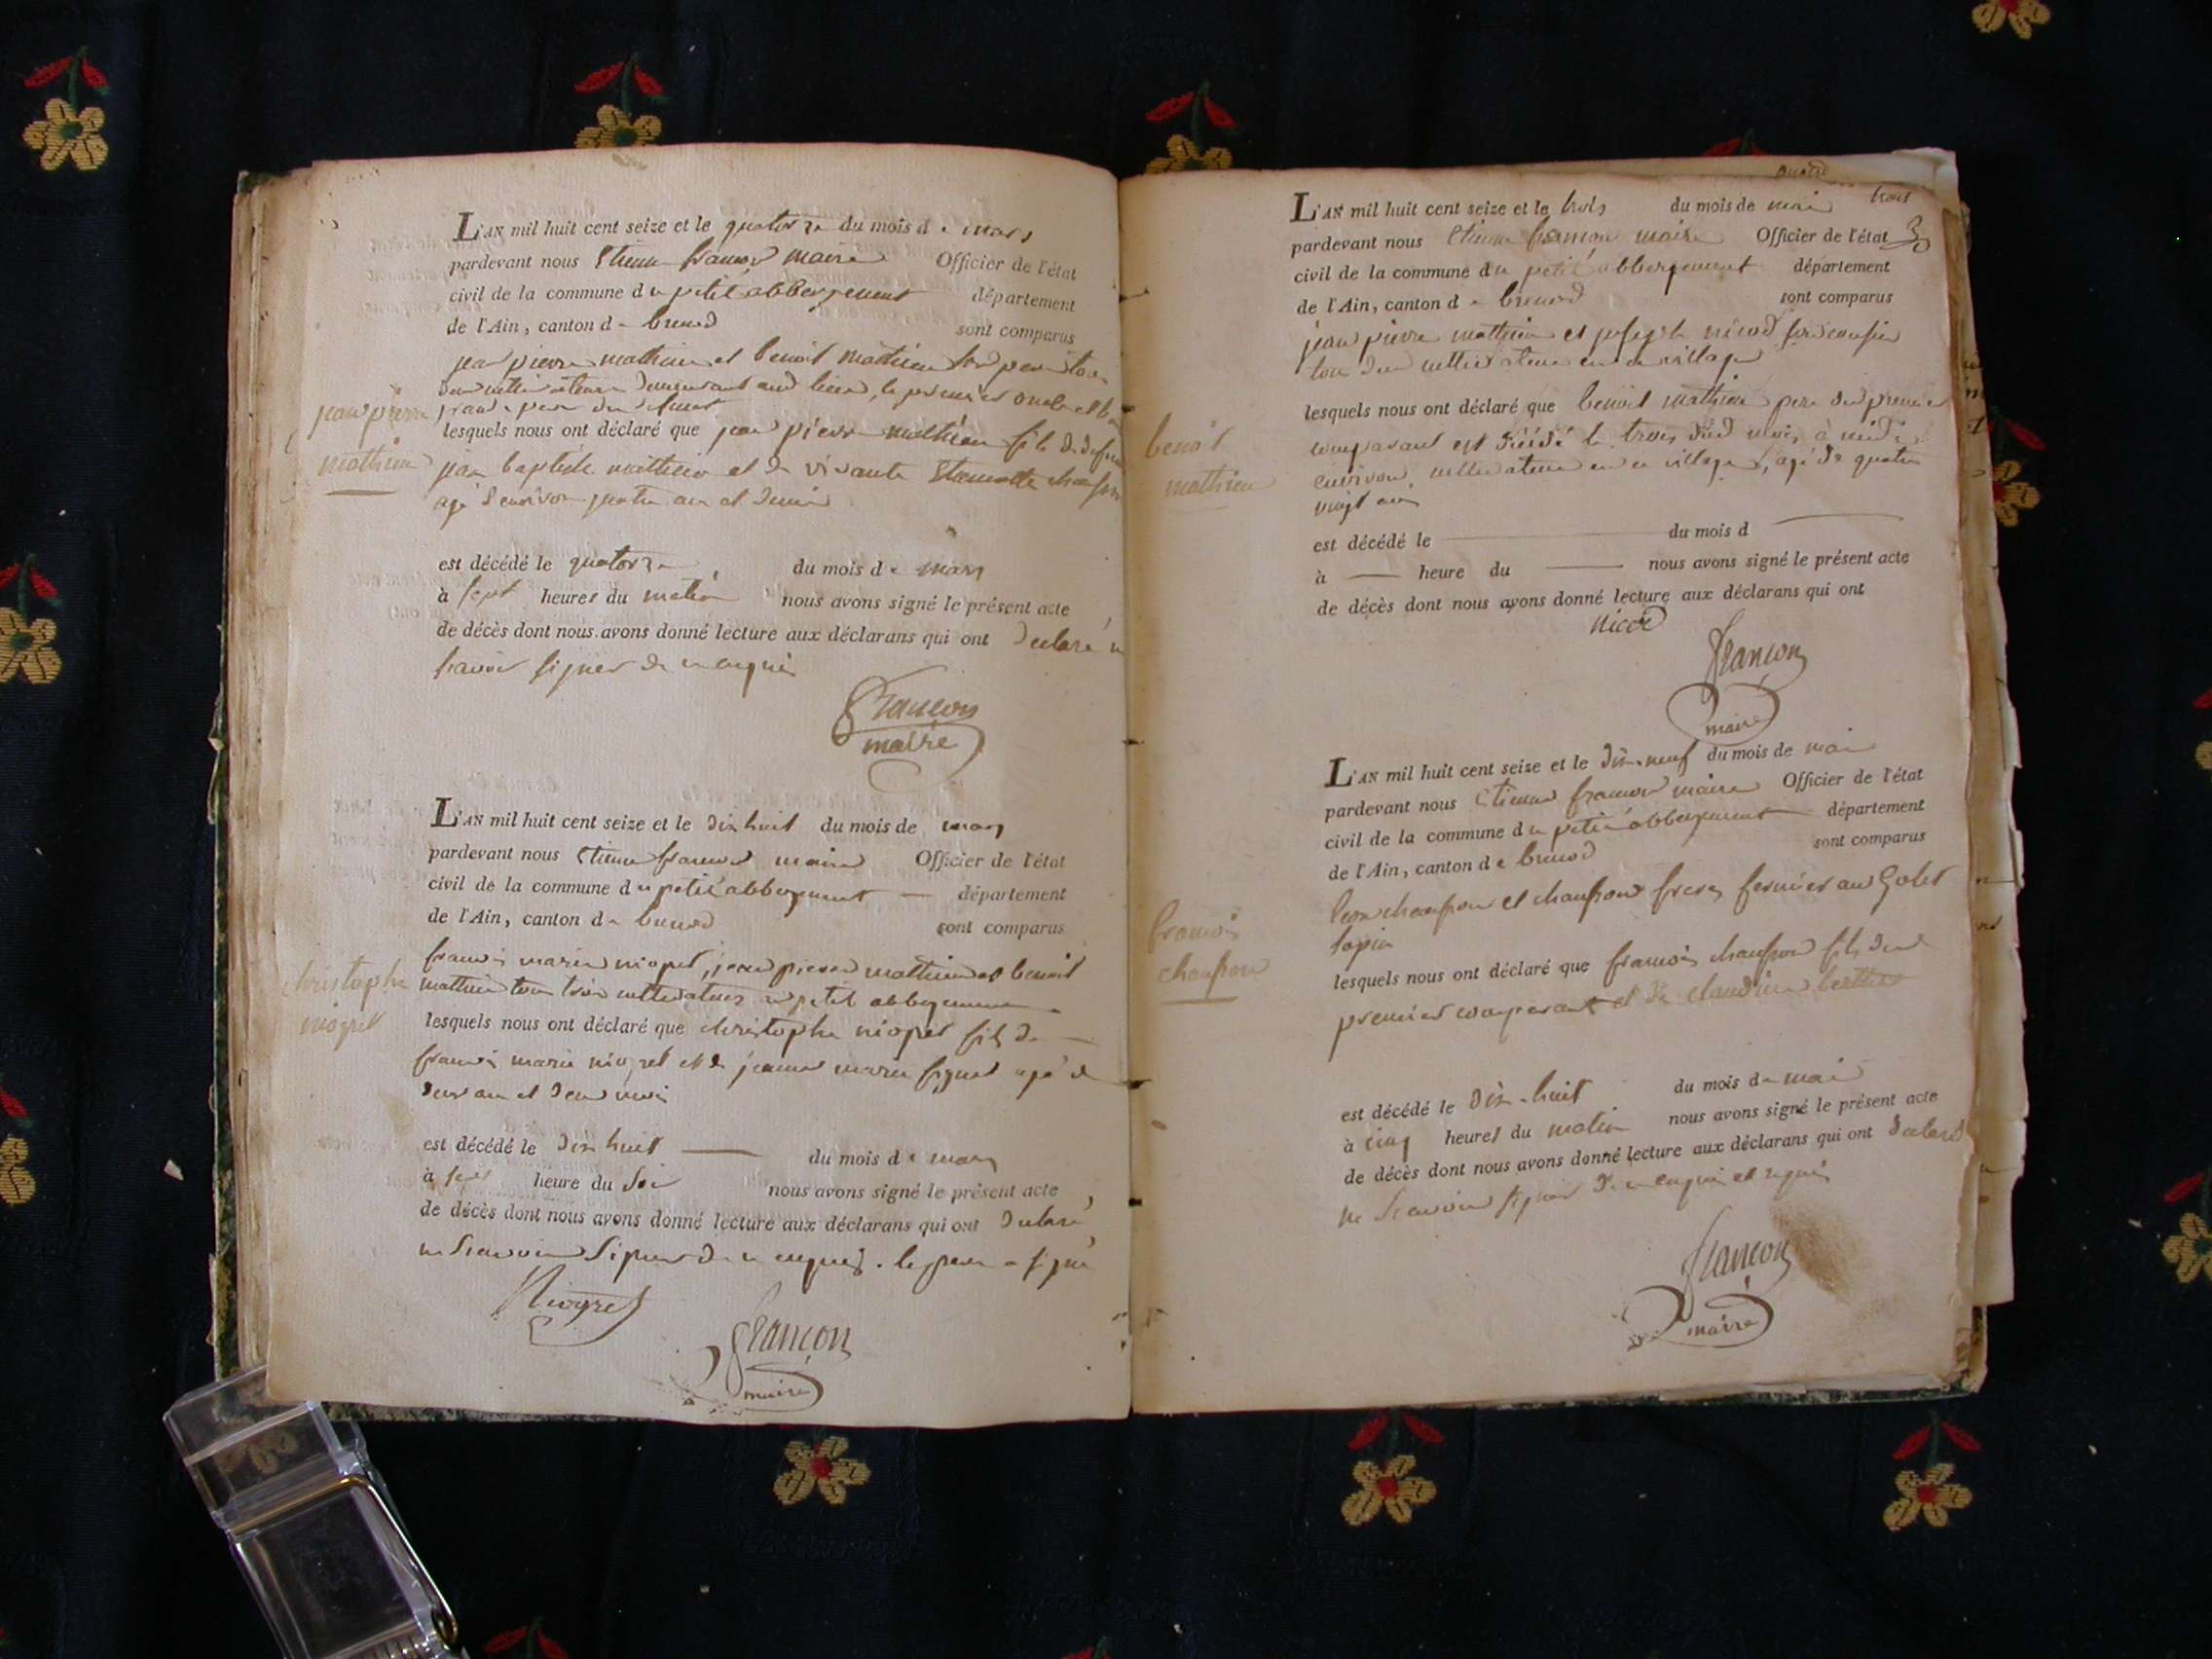 L'AN mil huit cent seize et le quatorze du mois de mars
pardevant nous Etienne francon maire Officier de l'état
civil de la commune du petit abbergement département
de l'Ain, canton de brenod sont comparus
jean pierre mathieu et benoit mathieu son pere tous
deux cultivateurs demeurant aud lieu, le premier oncle et le
grand pere du defunt
lesquels nous ont déclaré que jean pierre mathieu fils de defunt
jean baptiste mathieu et de vivante
agé d'environ quatre ans et demi
est décédé le quatorze du mois de mars
à sept heures du matin nous avons signé le présent acte
de décès dont nous avons donné lecture aux déclarans qui ont declaré ne
scavoir signer de ce enquis
francon
maire
jean pierre
mathieu
L'AN mil huit cent seize et le dix huit du mois de mars
pardevant nous Etienne francon maire Officier de l'état
civil de la commune du petit abbergement département
de l'Ain, canton de brenod sont comparus
francois marie niogret, jean pierre mathieu et benoit
mathieu tous trois cultivateurs au petit abbergement
lesquels nous ont déclaré que christophe niogret fils de
francois marie niogret et de jeanne marie agé de
deux ans et deux mois
est décédé le dix huit du mois de mars
à sept heure du soir nous avons signé le présent acte
de décès dont nous avons donné lecture aux déclarans qui ont declaré
ne scavoir signer de ce enquis. le pere a signé
Niogret
francon
maire
christophe
niogret
trois
3
L'AN mil huit cent seize et le trois du mois de mai
pardevant nous Etienne francon maire Officier de l'état
civil de la commune du petit abbergement département
de l'Ain, canton de brenod sont comparus
jean pierre mathieu et joseph nicod son cousin
tous deux cultivateurs en ce village
lesquels nous ont déclaré que benoit mathieu pere du premier
comparant est décédé le trois dud mois à midi
environ, cultivateur en ce village, agé de quatre
vingt ans
est décédé le du mois d
à heure du nous avons signé le présent acte
de décès dont nous avons donné lecture aux déclarans qui ont
nicod
francon
maire
benoit
mathieu
L'AN mil huit cent seize et le dix-neuf du mois de mai
pardevant nous Etienne francon maire Officier de l'état
civil de la commune du petit abbergement département
de l'Ain, canton de brenod sont comparus
chanfron et chanfron freres fermier au Golet
tapin
lesquels nous ont déclaré que francois chanfron fils du
premier comparant et de claudine
est décédé le dix-huit du mois de mai
à cinq heures du matin nous avons signé le présent acte
de décès dont nous avons donné lecture aux déclarans qui ont declaré
ne scavoir signer de ce enquis et requis
francon
maire
francois
chanfron